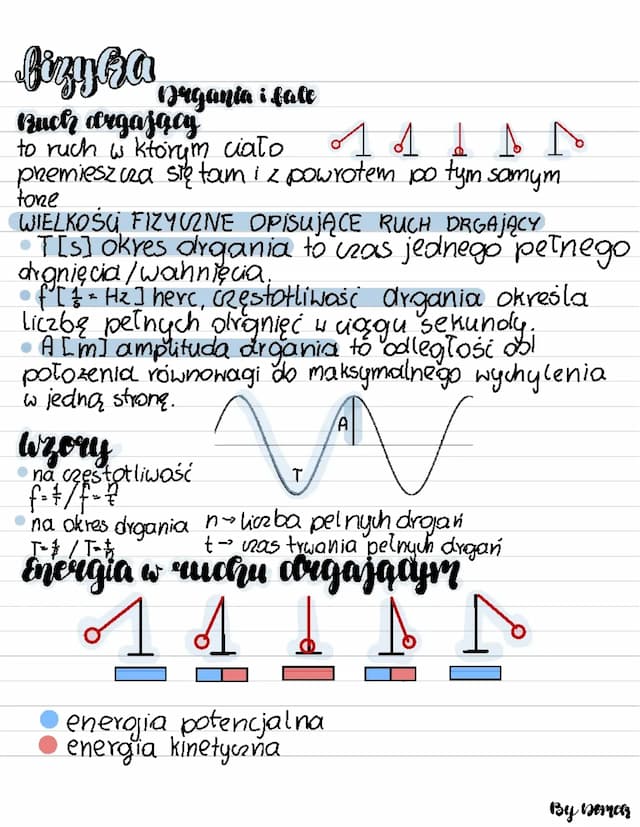 fizyka
Drgania i fale
Ruch drgający
to ruch w którym ciało
przemieszcza się tam i z powrotem po tym samym
torze
WIELKOŚCI FIZYCZNE OPISUJĄCE RUCH DRGAJĄCY
• T[s] okres drgania to czas jednego pełnego
drgnięcia/wahnięcia.
• f [1/s = Hz] herc, częstotliwość drgania określa
liczbę pełnych drgnięć w ciągu sekundy.
• A [m] amplituda drgania to odległość od
położenia równowagi do maksymalnego wychylenia
w jedną stronę.
A
T
Wzory
• na częstotliwość
f=1/T / f=n/t
• na okres drgania n→liczba pełnych drgań
T=1/f / T=t/n t→ czas trwania pełnych drgań
Energia w ruchu drgającym
energia potencjalna
energia kinetyczna
By